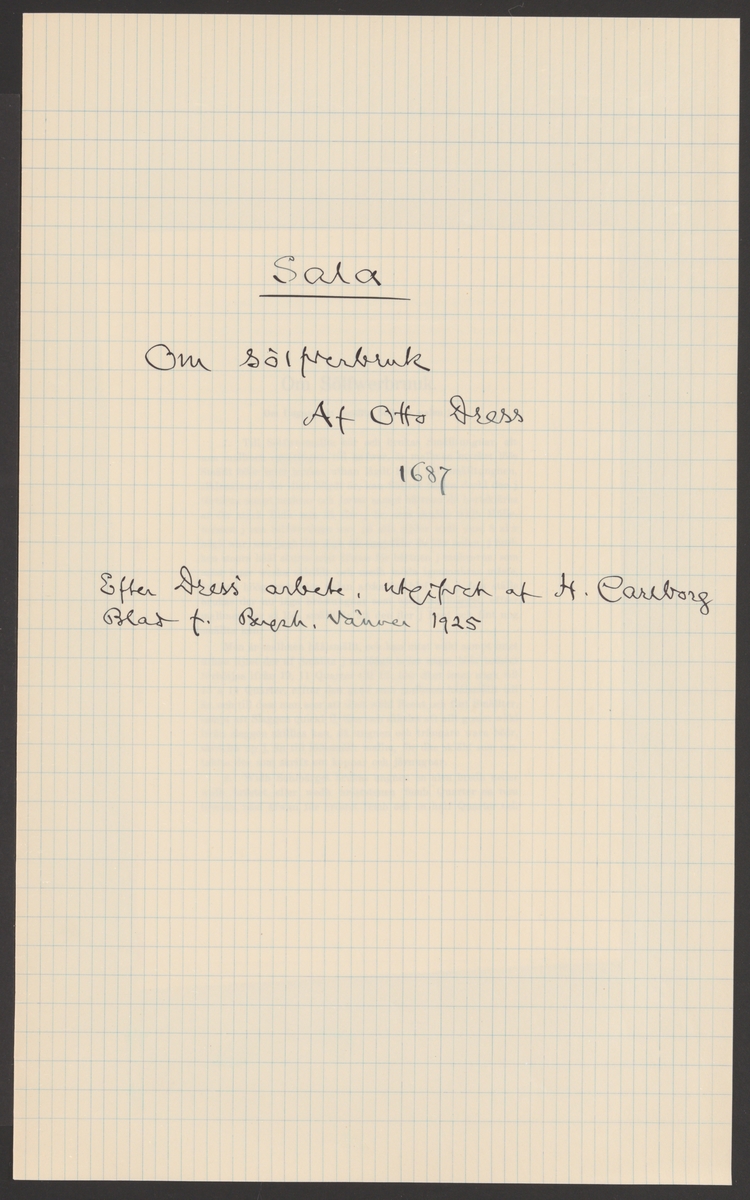 Sala
Om sölfverbruk
Af Otto Dress
1687
Efter Dress' arbete, utgifvet af H. Carlborg
Blad f. Bergsh. Vänner 1925